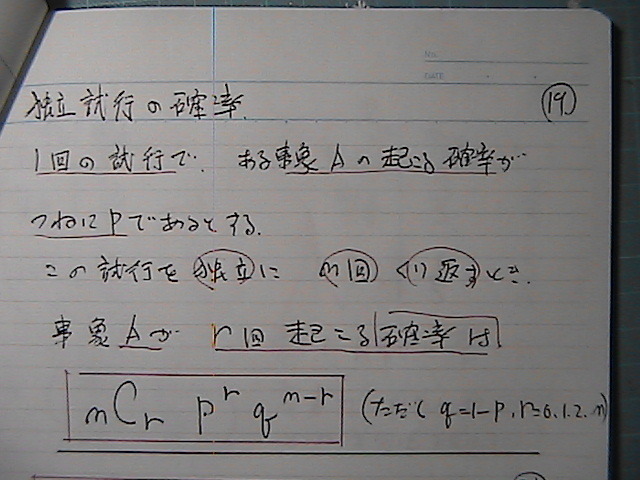 No.
DATE
独立試行の確率. ⑲
1回の試行で、ある事象Aの起こる確率が
つねにPであるとする.
この試行を独立に n回くり返すとき.
事象Aが r回起こる確率は
nCr p^r q^n-r (ただし q=1-p, r=0.1.2. n)